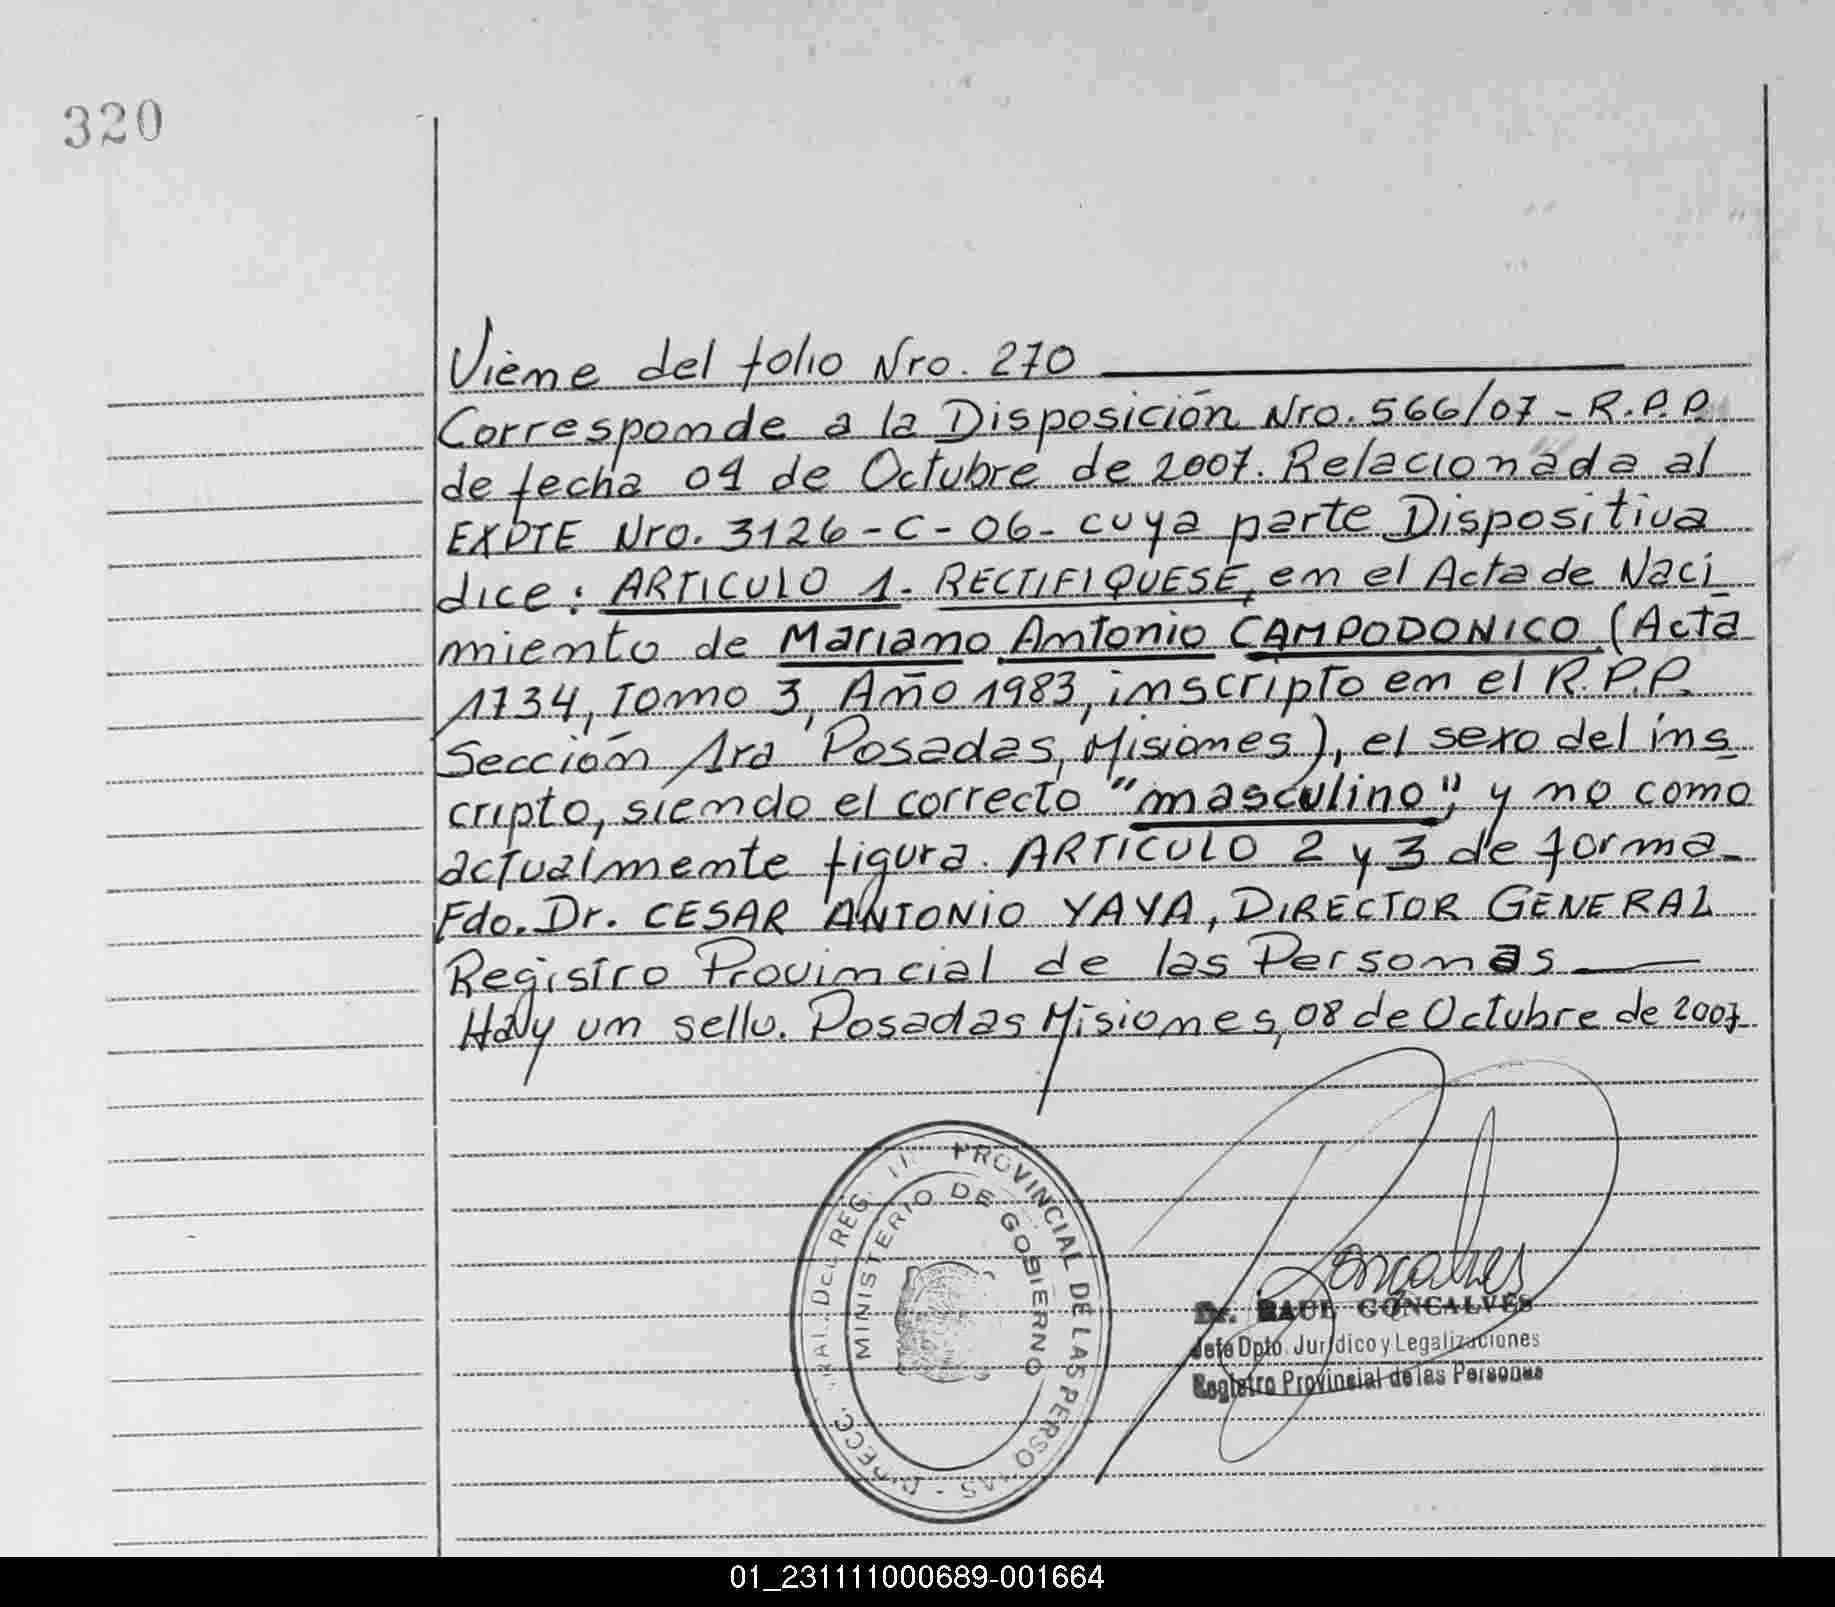 320
Viene del folio Nro. 270
Corresponde a la Disposición Nro. 566/07 - R.P.P.
de fecha 04 de Octubre de 2007. Relacionada al
EXPTE Nro. 3126 - C - 06 - cuya parte Dispositiva
dice: ARTICULO 1. RECTIFIQUESE, en el Acta de Naci
miento de Mariano Antonio CAMPODONICO (Acta
1734, Tomo 3, Año 1983, inscripto en el R.P.P.
Sección 1ra Posadas, Misiones), el sexo del ins
cripto, siendo el correcto "masculino", y no como
actualmente figura. ARTICULO 2 y 3 de forma-
Fdo. Dr. CESAR ANTONIO YAYA, DIRECTOR GENERAL
Registro Provincial de las Personas
Hay un sello. Posadas Misiones, 08 de Octubre de 2007
PROVINCIAL DE LAS
MINISTERIO DE GOBIERNO
Gonçalves
Dr. RAUL GONCALVES
Jefe Dpto. Jurídico y Legalizaciones
Registro Provincial de las Personas
01_231111000689-001664